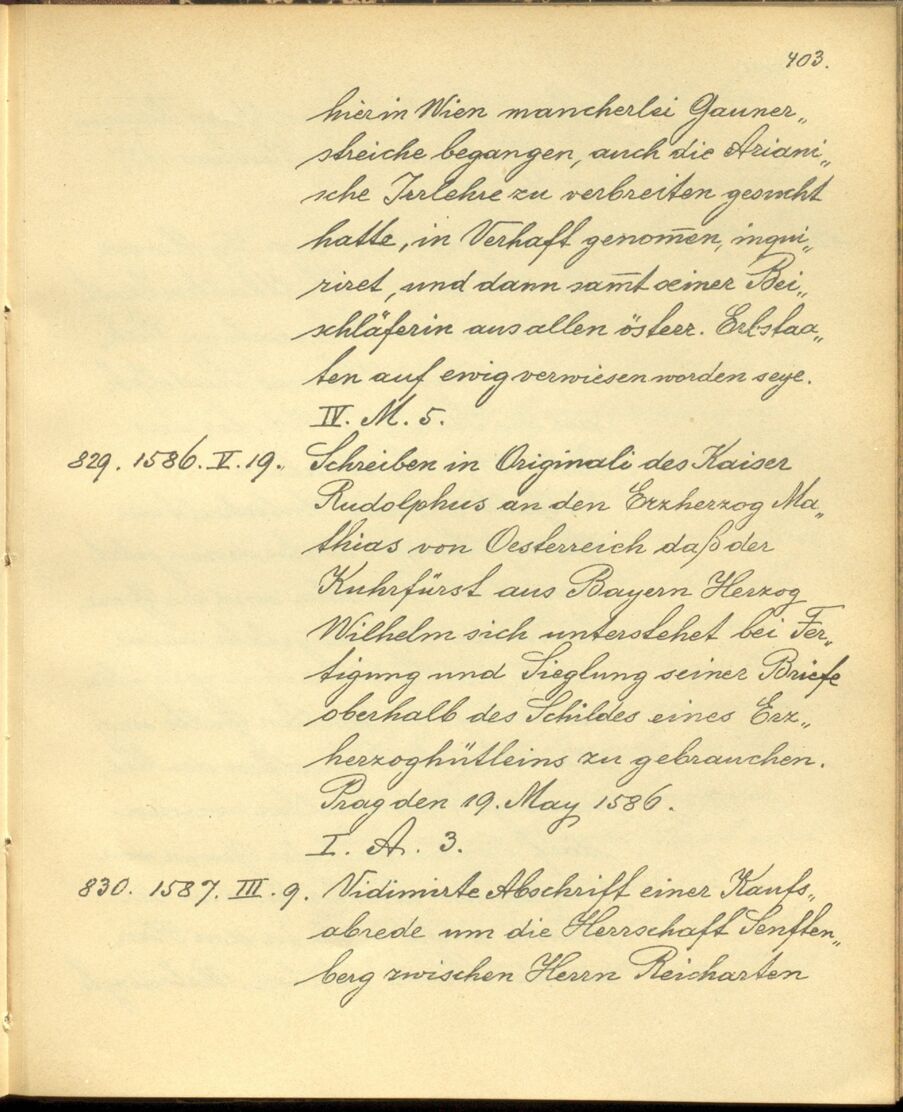 403.
hier in Wien mancherlei Gauner„
streiche begangen, auch die Ariani„
sche Irrlehre zu verbreiten gesucht
hatte, in Verhaft genom̅en, inqui„
riret, und dann sam̅t seiner Bei„
schläferin aus allen österr. Erbstaa„
ten auf ewig verwiesen worden seye.
IV. M. 5.
829. 1586. V. 19. Schreiben in Originali des Kaiser
Rudolphus an den Erzherzog Ma„
thias von Oesterreich daß der
Kuhrfürst aus Bayern Herzog
Wilhelm sich unterstehet bei Fer„
tigung und Sieglung seiner Briefe
oberhalb des Schildes eines Erz„
herzoghütleins zu gebrauchen.
Prag den 19. May 1586.
I. A. 3.
830. 1587. III. 9. Vidimirte Abschrift einer Kaufs„
abrede um die Herrschaft Senften„
berg zwischen Herrn Reicharten